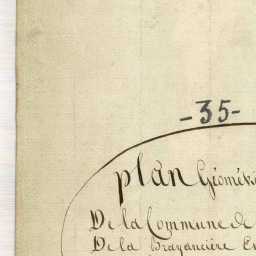 -35-
plan Géomét
De la Commune de
De la Brayancière En